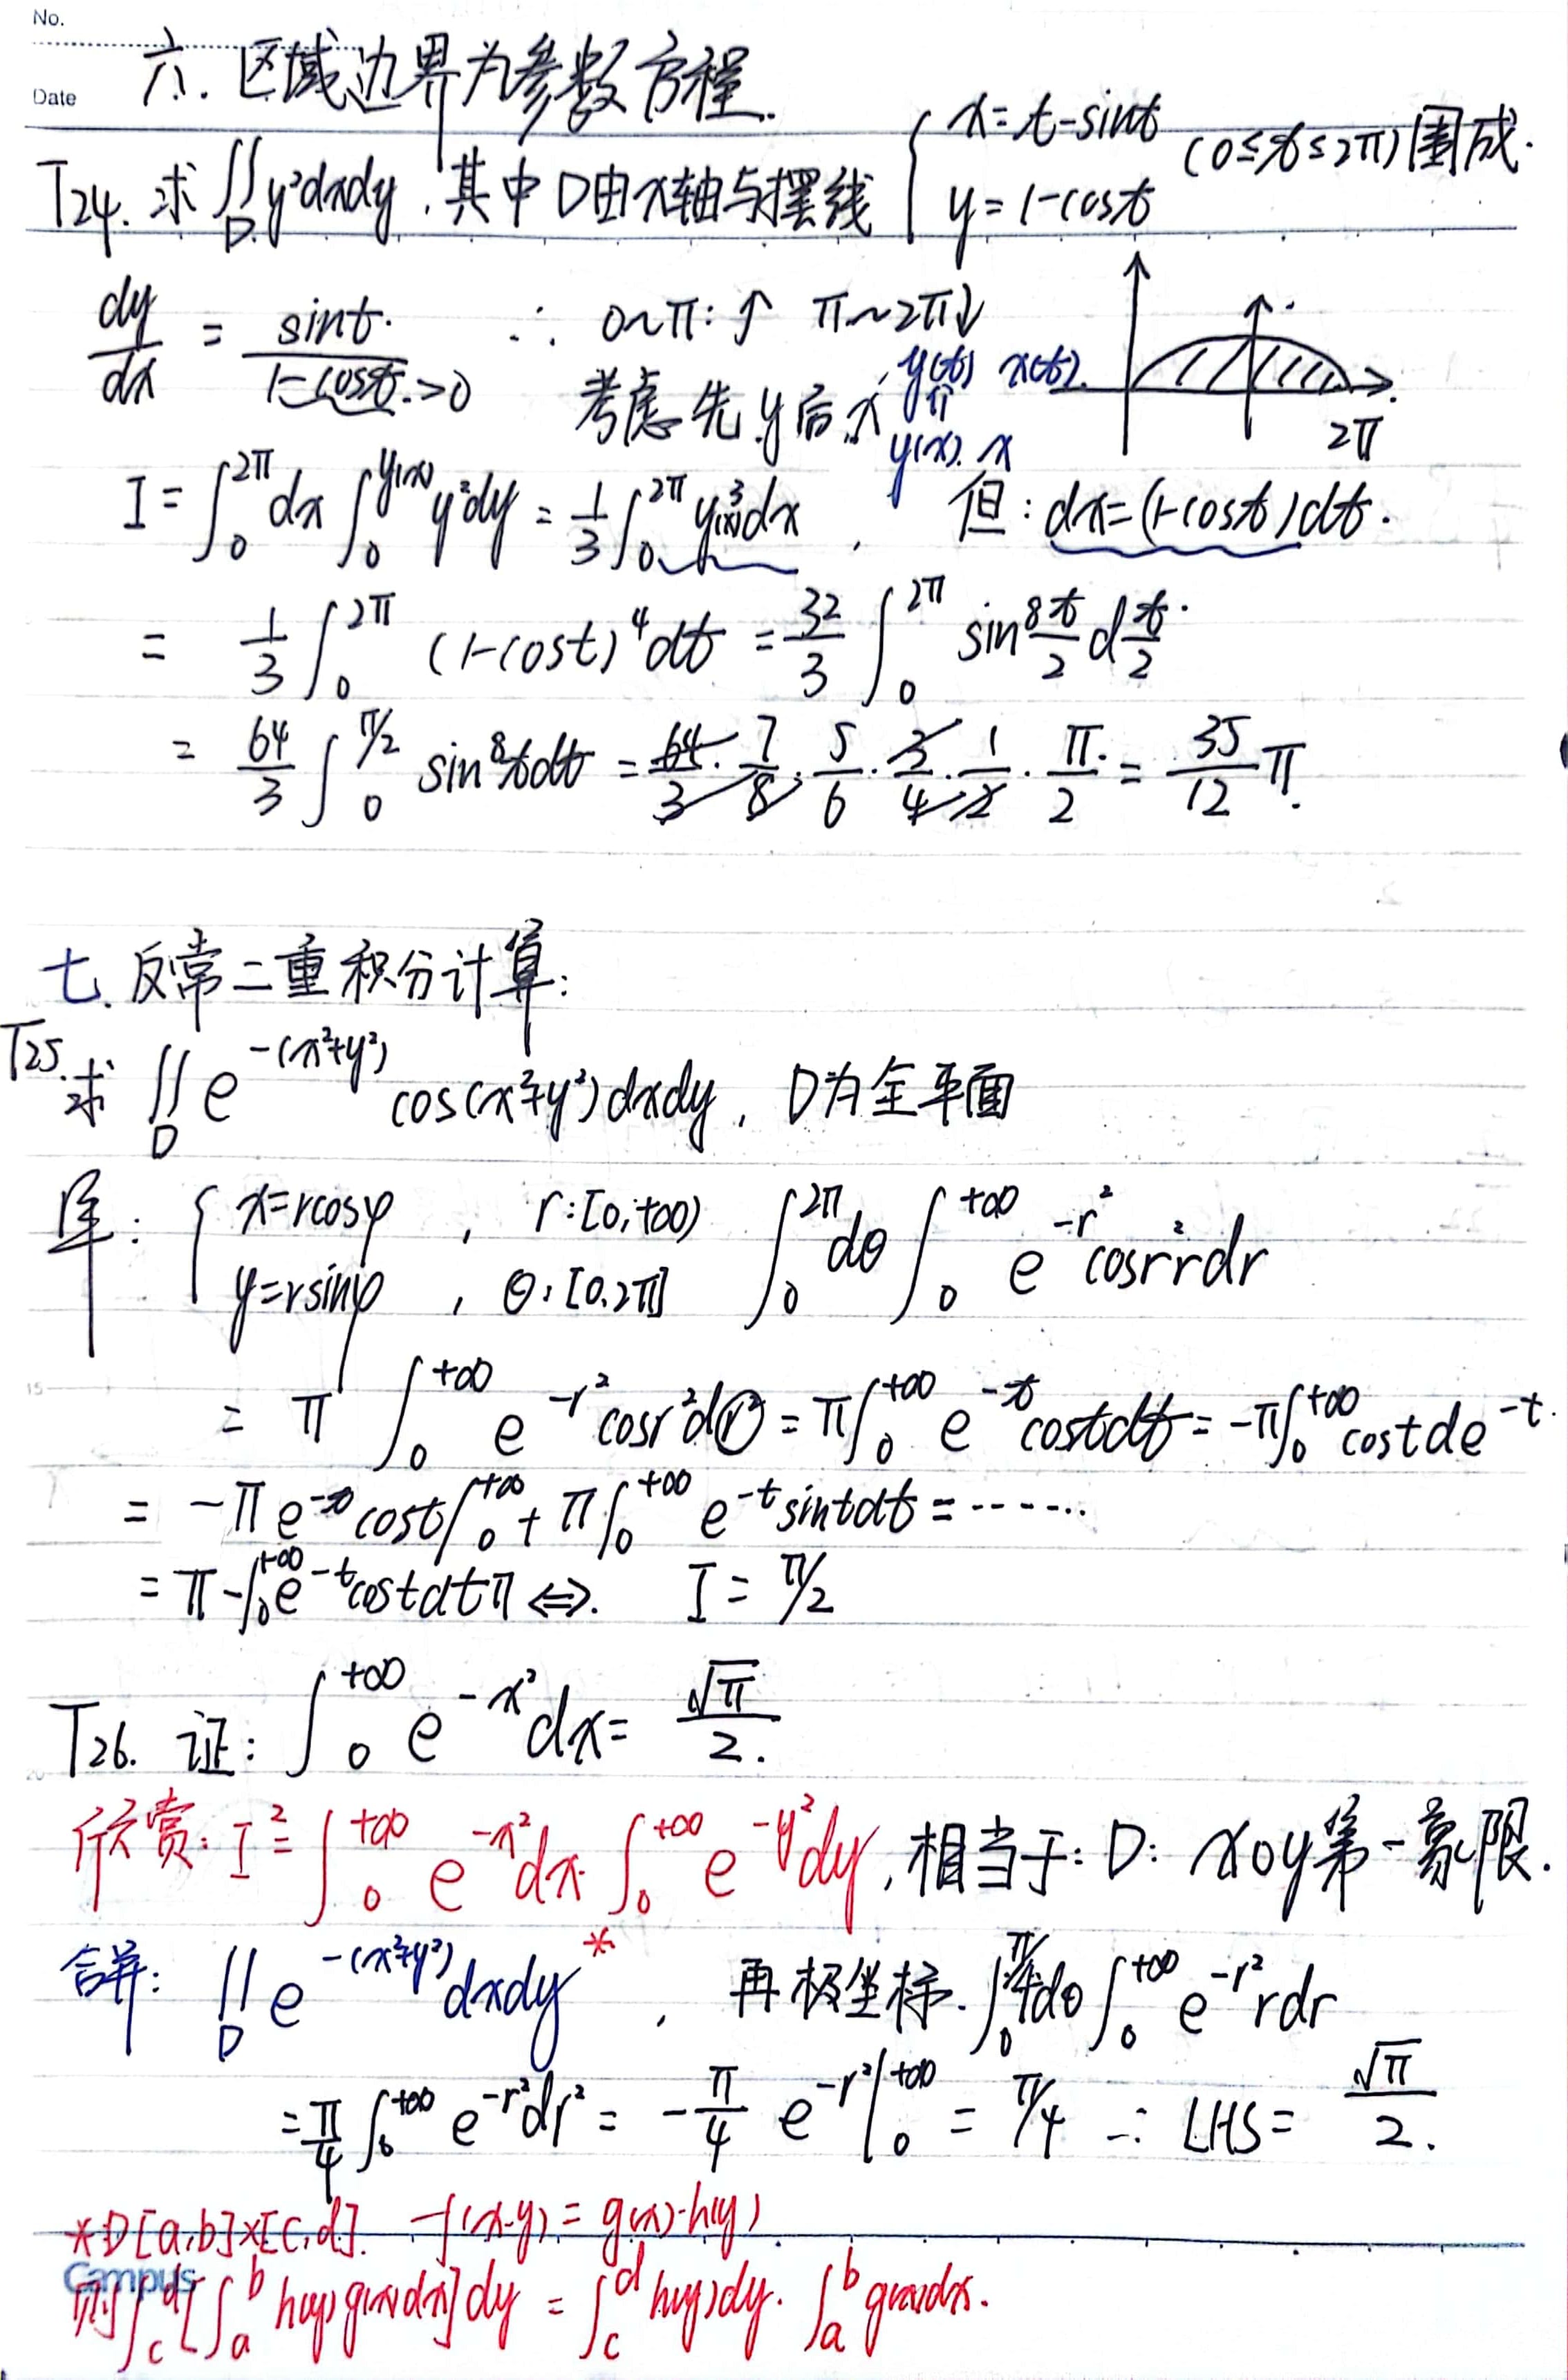 No.
Date
六. 区域边界为参数方程.
T24. 求 ∬_D y²dxdy, 其中D由x轴与摆线 { x=t-sint, y=1-cost (0≤t≤2π) 围成.
dy/dx = sint/(1-cost) >0 ∴ 0~π: ↑ π~2π↓
考虑先y后x y(t) x(t)
⇑
y(x). x
2π
I = ∫_0^{2π} dx ∫_0^{y(x)} y²dy = 1/3 ∫_0^{2π} y(x)³dx , 但: dx=(1-cost)dt.
= 1/3 ∫_0^{2π} (1-cost)⁴dt = 32/3 ∫_0^{2π} sin⁸ t/2 d t/2
= 64/3 ∫_0^{π/2} sin⁸tdt = 64/3 · 7/8 · 5/6 · 3/4 · 1/2 · π/2 = 35/12 π.
七. 反常二重积分计算:
T25. 求 ∬_D e^{-(x²+y²)} cos(x²+y²)dxdy, D为全平面
解: { x=rcosφ, y=rsinφ , r:[0,+∞) , θ:[0,2π] ∫_0^{2π} dθ ∫_0^{+∞} e^{-r²} cosr² rdr
= π ∫_0^{+∞} e^{-r²} cosr²dr² = π∫_0^{+∞} e^{-t} costdt = -π∫_0^{+∞} costde^{-t}.
= -πe^{-t} cost|_0^{+∞} + π∫_0^{+∞} e^{-t} sintdt = ······
= π-∫_0^{+∞} e^{-t} costdtπ ⇔. I = π/2
T26. 证: ∫_0^{+∞} e^{-x²} dx = √π/2.
欣赏: I² = ∫_0^{+∞} e^{-x²} dx · ∫_0^{+∞} e^{-y²} dy, 相当于: D: xoy第一象限.
合并: ∬_D e^{-(x²+y²)} dxdy * , 再极坐标. ∫_0 dθ ∫_0^{+∞} e^{-r²} rdr
= π/4 ∫_0^{+∞} e^{-r²} dr² = -π/4 e^{-r²}|_0^{+∞} = π/4 ∴ LHS = √π/2.
*D[a,b]×[c,d]. f(x·y) = g(x)·h(y)
Campus
则∫_c^d [∫_a^b h(y)g(x)dx]dy = ∫_c^d h(y)dy · ∫_a^b g(x)dx.